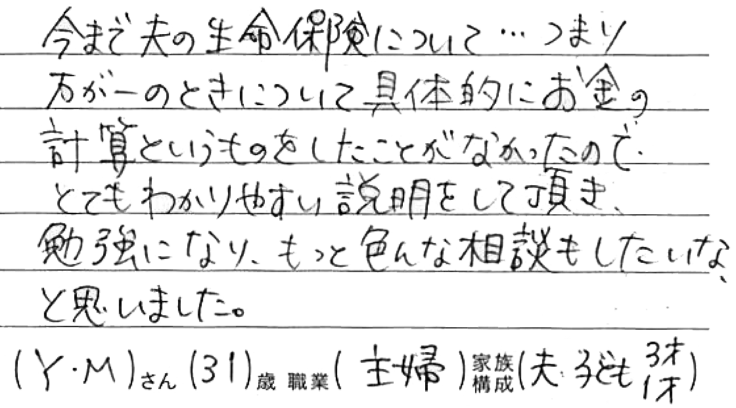 今まで夫の生命保険について…つまり
万が一のときについて具体的にお金の
計算というものをしたことがなかったので、
とてもわかりやすい説明をして頂き、
勉強になり、もっと色んな相談もしたいな、
と思いました。
(Y・M)さん(31)歳 職業(主婦)家族構成(夫 子ども 3才 1才)